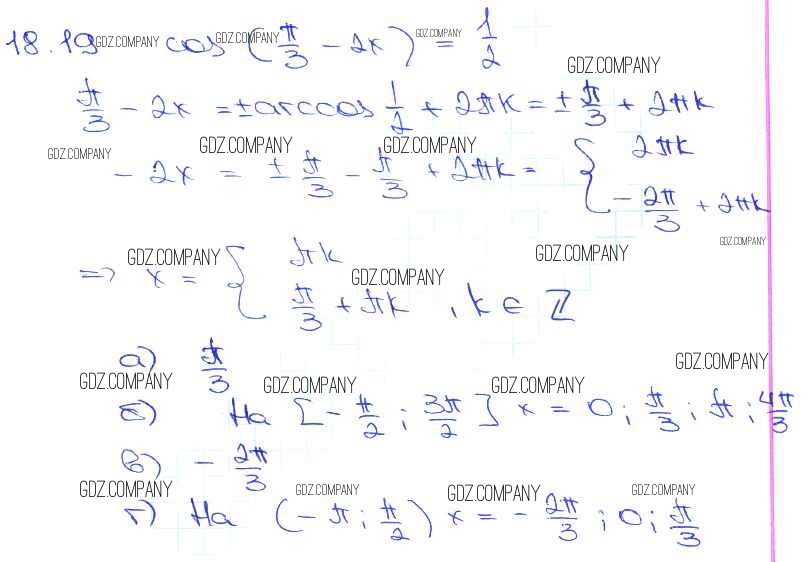 18.19 GDZ.COMPANY cos GDZ.COMPANY (π/3 - 2x) GDZ.COMPANY = 1/2
GDZ.COMPANY
π/3 - 2x = ± arccos 1/2 + 2πk = ± π/3 + 2πk
GDZ.COMPANY GDZ.COMPANY GDZ.COMPANY
- 2x = ± π/3 - π/3 + 2πk = { 2πk
- 2π/3 + 2πk
GDZ.COMPANY
GDZ.COMPANY GDZ.COMPANY
=> x = { πk
GDZ.COMPANY
π/3 + πk , k ∈ ℤ
а) π/3
GDZ.COMPANY
GDZ.COMPANY GDZ.COMPANY GDZ.COMPANY
б) На [- π/2 ; 3π/2] x = 0 ; π/3 ; π ; 4π/3
в) - 2π/3
GDZ.COMPANY GDZ.COMPANY GDZ.COMPANY GDZ.COMPANY
г) На (- π ; π/2) x = - 2π/3 ; 0 ; π/3